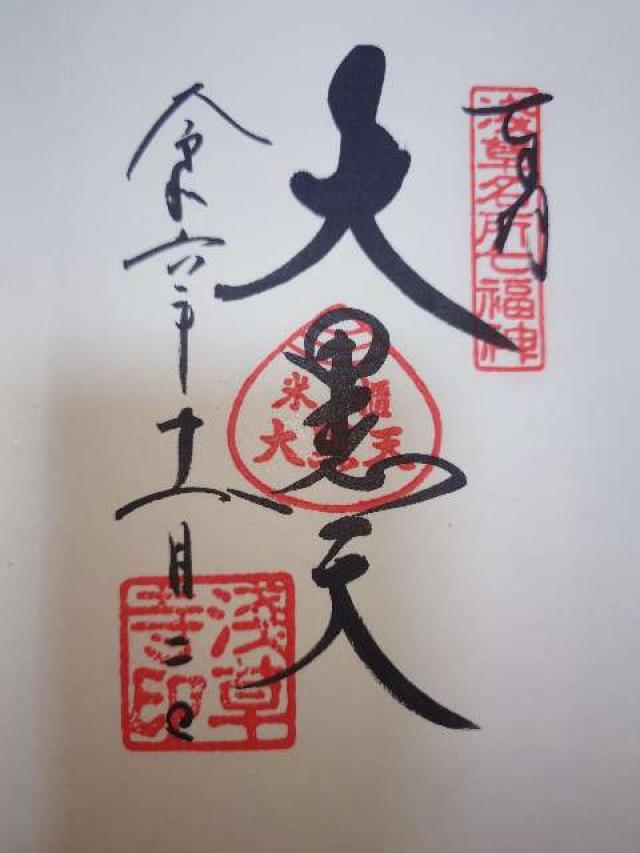 奉拝
浅草名所七福神
大黒天
米櫃
大黒天
令和六年十一月二日
浅草寺印